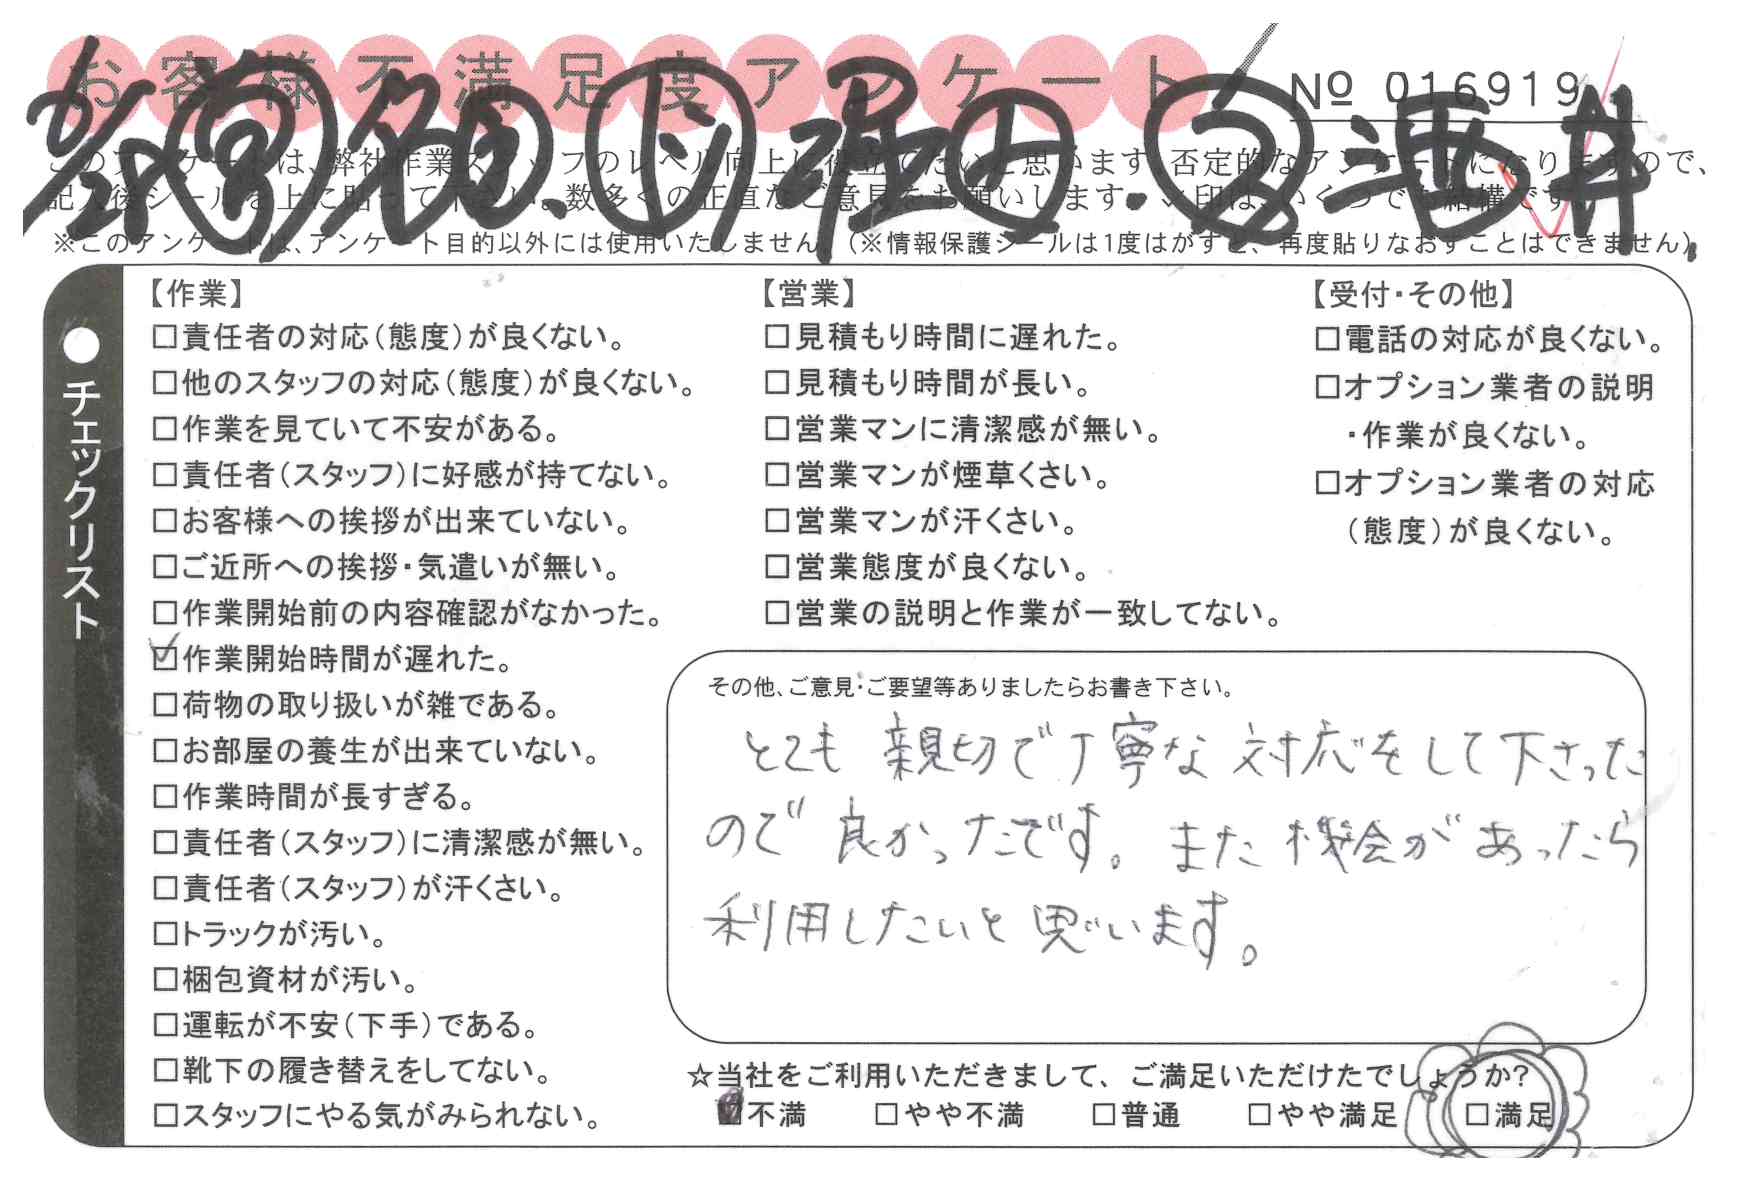 お客様不満足度アンケート
№ 016919
このアンケートは、弊社作業スタッフのレベル向上に役立てたいと思います。否定的なアンケートになりますので、
記入後シールを上に貼って下さい。数多くの正直なご意見をお願いします。✓印は、いくつでも結構です。
※このアンケートは、アンケート目的以外には使用いたしません。(※情報保護シールは1度はがすと、再度貼りなおすことはできません)
酒井
●チェックリスト
【作業】
□責任者の対応(態度)が良くない。
□他のスタッフの対応(態度)が良くない。
□作業を見ていて不安がある。
□責任者(スタッフ)に好感が持てない。
□お客様への挨拶が出来ていない。
□ご近所への挨拶・気遣いが無い。
□作業開始前の内容確認がなかった。
☑作業開始時間が遅れた。
□荷物の取り扱いが雑である。
□お部屋の養生が出来ていない。
□作業時間が長すぎる。
□責任者(スタッフ)に清潔感が無い。
□責任者(スタッフ)が汗くさい。
□トラックが汚い。
□梱包資材が汚い。
□運転が不安(下手)である。
□靴下の履き替えをしてない。
□スタッフにやる気がみられない。
【営業】
□見積もり時間に遅れた。
□見積もり時間が長い。
□営業マンに清潔感が無い。
□営業マンが煙草くさい。
□営業マンが汗くさい。
□営業態度が良くない。
□営業の説明と作業が一致してない。
【受付・その他】
□電話の対応が良くない。
□オプション業者の説明
・作業が良くない。
□オプション業者の対応
(態度)が良くない。
その他、ご意見・ご要望等ありましたらお書き下さい。
とても親切で丁寧な対応をして下さった
ので良かったです。また機会があったら
利用したいと思います。
☆当社をご利用いただきまして、ご満足いただけたでしょうか?
■不満 □やや不満 □普通 □やや満足 □満足